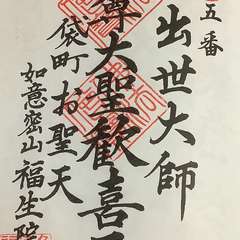 五番
出世大師
尊大聖歓喜天
袋町お聖天
如意密山福生院